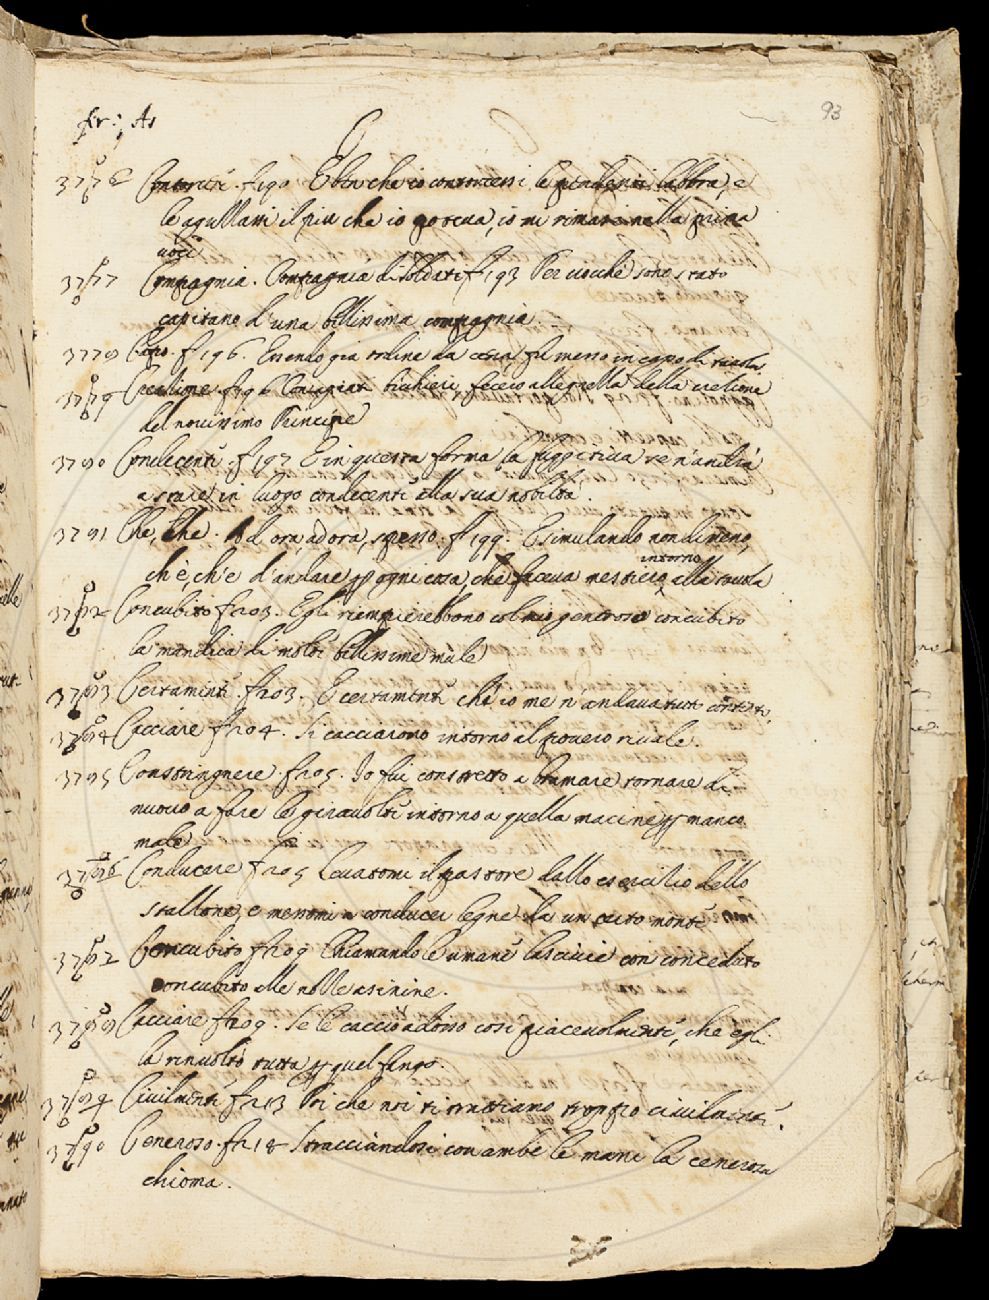 fir: As
C
93
3776 Contorcere. f190 E ben che io contorcessi le pendenti labbra, e
le aguzzassi il piu che io poteva, io mi rimasi nella prima
voce
3777 Compagnia. Compagnia di soldati f193 Per cioche sono stato
capitano d'una bellissima compagnia
3778 Capo. f196. Essendo gia ordine da cena fu messo in capo di tavola
3779 f196 allegrezza della
del novissimo Principe
3780 Condecente. f197 E in questa forma la fuggitiva se n'andrà
a stare in luogo condecente alla sua nobiltà.
3781 Che, che. Ad ora, ad ora, spesso. f199. E simulando non di meno,
ch'è, ch'è d'andare per ogni cosa, che faceva mestiero intorno alla tavola
3782 Concubito f203. Egli riempierebbono col mio generoso concubito
la mandria di molte bellissime mule
3783 Certamente. f203. E certamente ch'io me n'andava
3784 Cacciare f204. Si cacciarono intorno al povero rivale.
3785 Constringnere f205. Io fui constretto a bramare tornare di
nuovo a fare le giravolte intorno a quella macine per manco
male
3786 Conducere f205 Levatomi il pastore dallo esercitio dello
stallone, e mettomi a conducer legne da un certo monte
3787 Concubito f209 Chiamando le umane lascivie con conceduto
concubito alle nozze asinine.
3788 Cacciare f209. Se le cacciò adosso così piacevolmente, che egli
la rinvoltò tutta per quel fango.
3789 Civilmente f213 Poi che noi ti trattiamo troppo civilmente.
3790 Ceneroso. f218 Stracciandosi con ambe le mani la cenerosa
chioma.